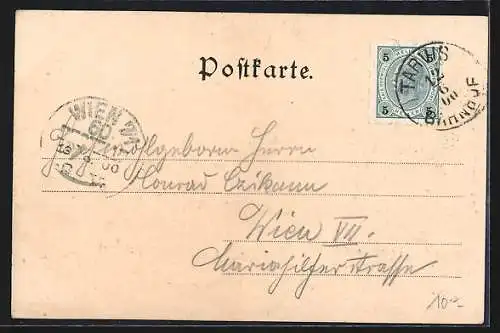 Postkarte.
5 5
5 5
TARVIS
BAHNHOF
WIEN 7/1
60
Hochwohlgeboren Herrn
Konrad Czikann
Wien VII.
Mariahilferstrasse
10.-